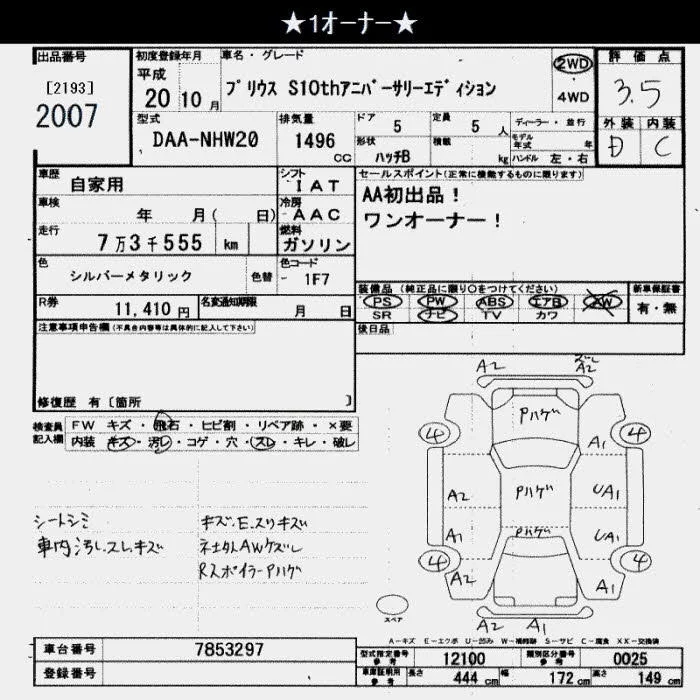 ★1ｵｰﾅｰ★
出品番号
[2193]
2007
初度登録年月
平成
20 10 月
車名・グレード
ﾌﾟﾘｳｽ S10thｱﾆﾊﾞｰｻﾘｰｴﾃﾞｨｼｮﾝ
2WD
4WD
評価点
3.5
外装 内装
D C
型式
DAA-NHW20
排気量
1496
cc
ドア
5
定員
5 人
形状
ハッチB
積載
kg
ディーラー・並行
モデル年式 年
ハンドル 左・右
車歴
自家用
シフト
IAT
車検
年 月( 日)
冷房
AAC
走行
7万3千555 km
燃料
ガソリン
色
シルバーメタリック
色替
色コード
1F7
R券
11,410円
名変通知期限
月 日
セールスポイント(正常に機能するものに限ります)
AA初出品！
ワンオーナー！
装備品(純正品に限り○をつけてください)
PS PW ABS エアB AW
SR ナビ TV カワ
新車保証書
有・無
後日品
注意事項申告欄(不具合内容等は具体的に記入して下さい)
修復歴 有〔箇所 〕
検査員記入欄
FW キズ・飛石・ヒビ割・リペア跡・×要
内装 キズ・汚レ・コゲ・穴・スレ・キレ・破レ
シートシミ
車内汚レ.スレ.キズ
キズ.E.スリキズ
ネ社外AWケズレ
Rスポイラー Pハゲ
A2
ズレ
A2
Pハゲ
4
4
A1
A2
Pハゲ
UA1
A1
Pハゲ
UA1
4
4
A2
A1
A2 A1
スペア
A－キズ E－エクボ U－凹み W－補修跡 S－サビ C－腐食 XX－交換済
車台番号
7853297
登録番号
型式指定番号
参考
12100
類別区分番号
参考
0025
車庫証明用
参考
長さ
444 cm
幅
172 cm
高さ
149 cm